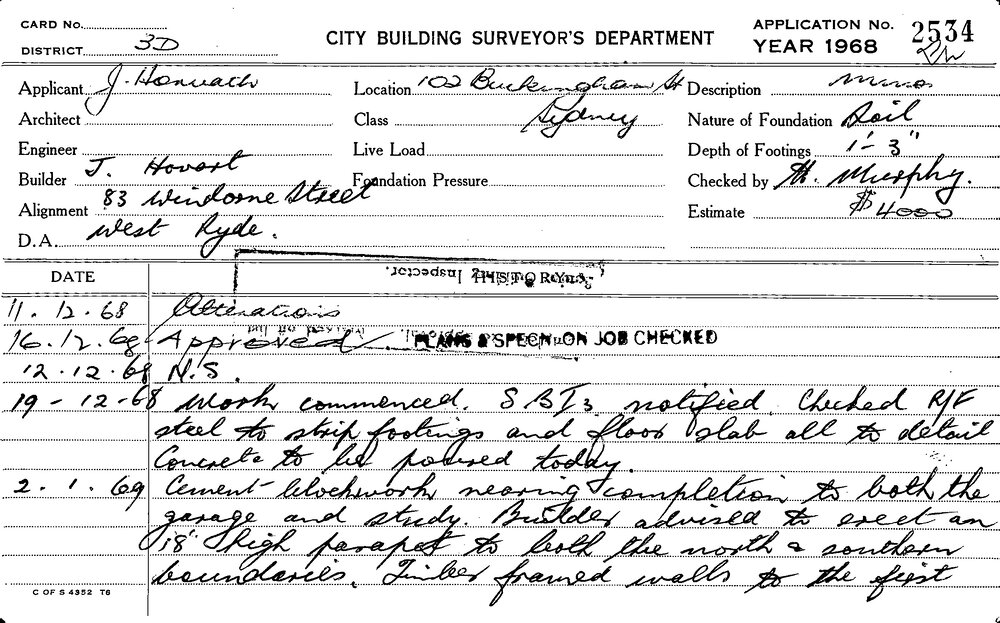 CARD No.
DISTRICT 3D
CITY BUILDING SURVEYOR'S DEPARTMENT
APPLICATION No. 2534
YEAR 1968
Applicant J. Horvath
Location 102 Buckingham St
Description
Architect
Class Sydney
Nature of Foundation Soil
Engineer
Live Load
Depth of Footings 1'-3"
Builder J. Hovart
Foundation Pressure
Checked by H. Murphy.
Alignment 83 Windorne Street
Estimate $4000
D.A. West Ryde.
DATE
HISTORY
Inspector.
11.12.68 Alterations
16.12.68 Approved. PLANS & SPECN. ON JOB CHECKED
12.12.68 N.S.
19-12-68 Work commenced. S B I 3 notified. Checked R/F
steel to strip footings and floor slab all to detail
Concrete to be poured today.
2.1.69 Cement blockwork nearing completion to both the
garage and study. Builder advised to erect an
18" high parapet to both the north & southern
boundaries. Timber framed walls to the first
C OF S 4352 T6